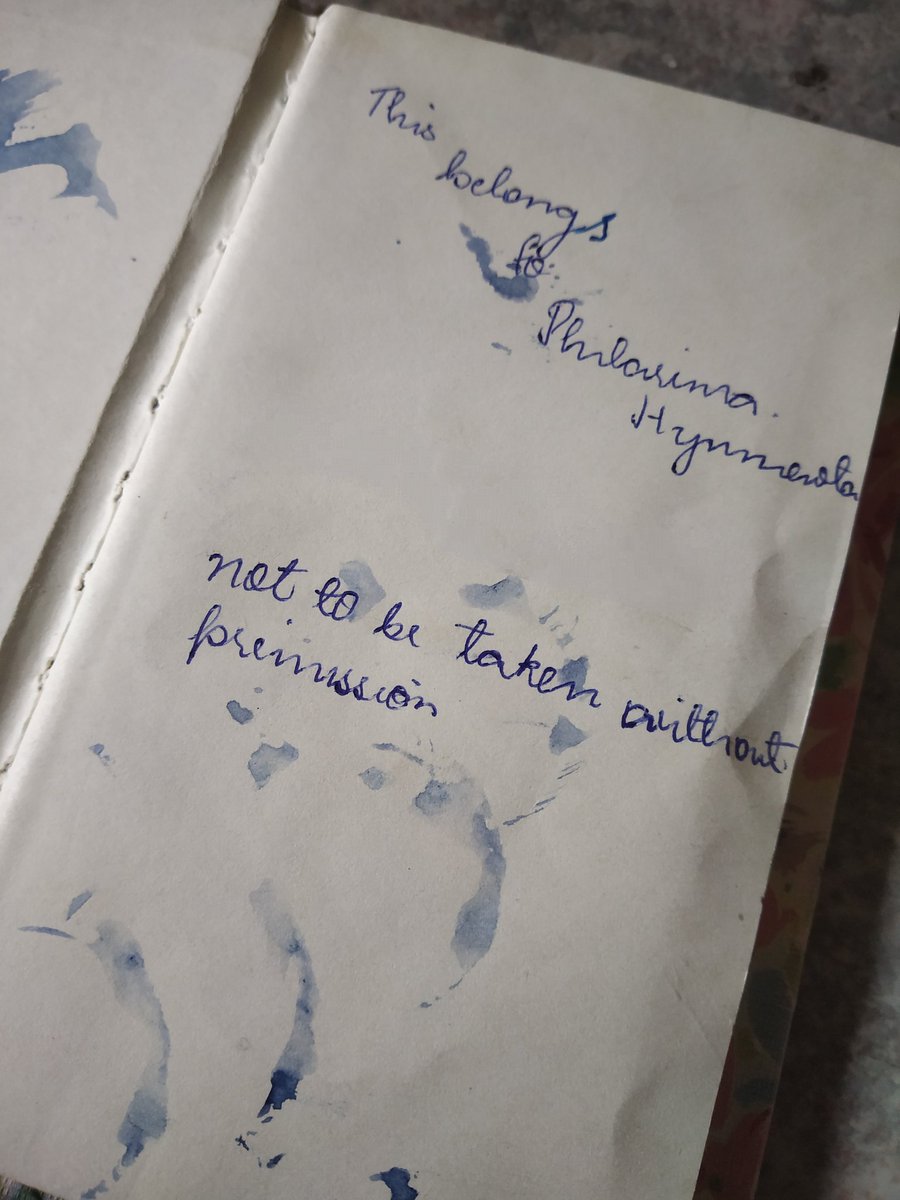 This
belongs
to:
Philarima.
Hynniewta
not to be taken without
preimission